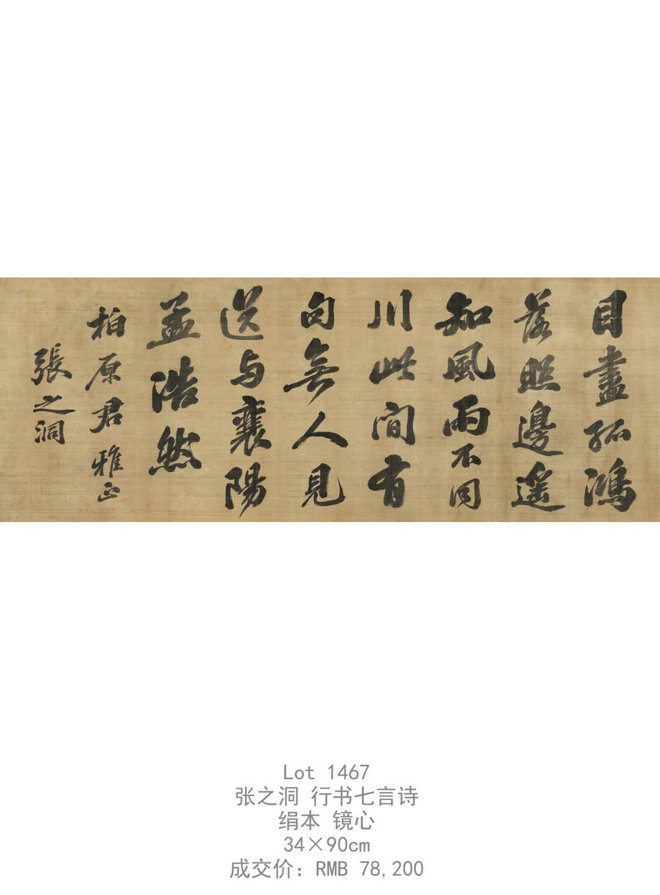 目盡孤鴻
落照邊遥
知風雨不同
川此間有
句無人見
送与襄陽
孟浩然
柏原君雅正
張之洞
Lot 1467
张之洞 行书七言诗
绢本 镜心
34×90cm
成交价：RMB 78,200